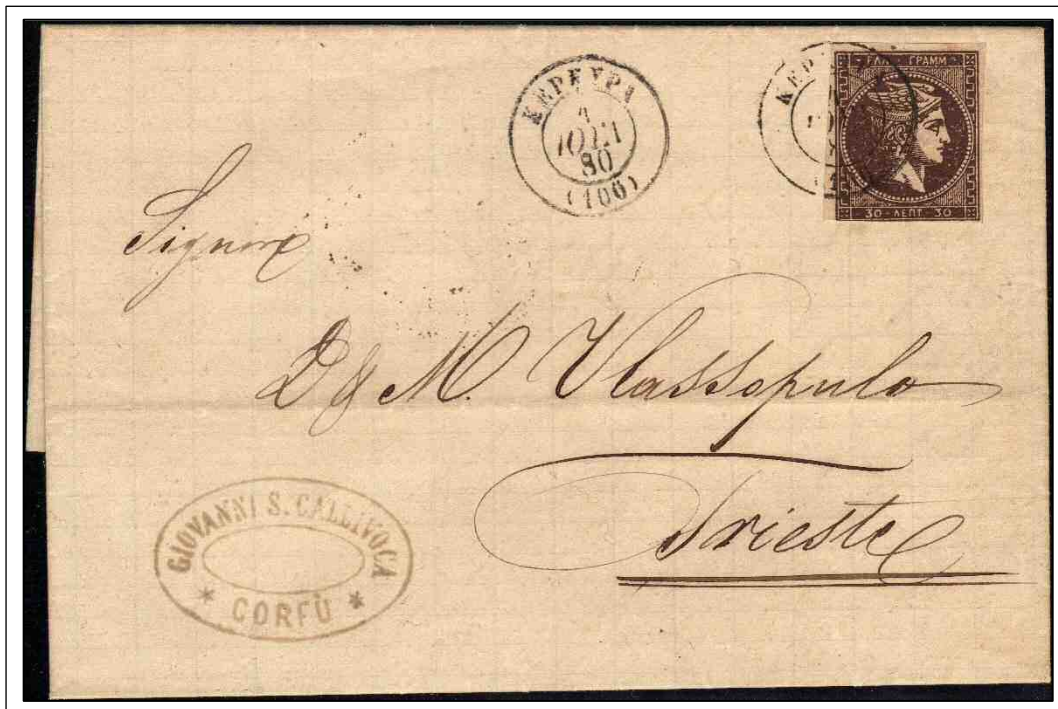 ΚΕΡΚΥΡΑ
1
ΙΟΥΛ
80
(100)
ΚΕΡ
ΕΛΛ ΓΡΑΜΜ
30 - ΛΕΠΤ - 30
Signori
D & M. Vlassopulo
Trieste
GIOVANNI S. CALLIVOCA
* CORFÙ *